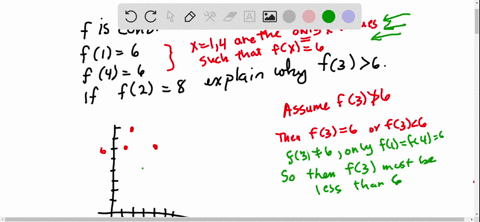 f is
f(1) = 6
f(4) = 6
x=1,4 are the only x
such that f(x)=6
If f(2) = 8 explain why f(3) > 6.
Assume f(3)≯6
Then f(3)=6 or f(3)<6
f(3)≠6, only f(1)=f(4)=6
So then f(3) must be
less than 6
6